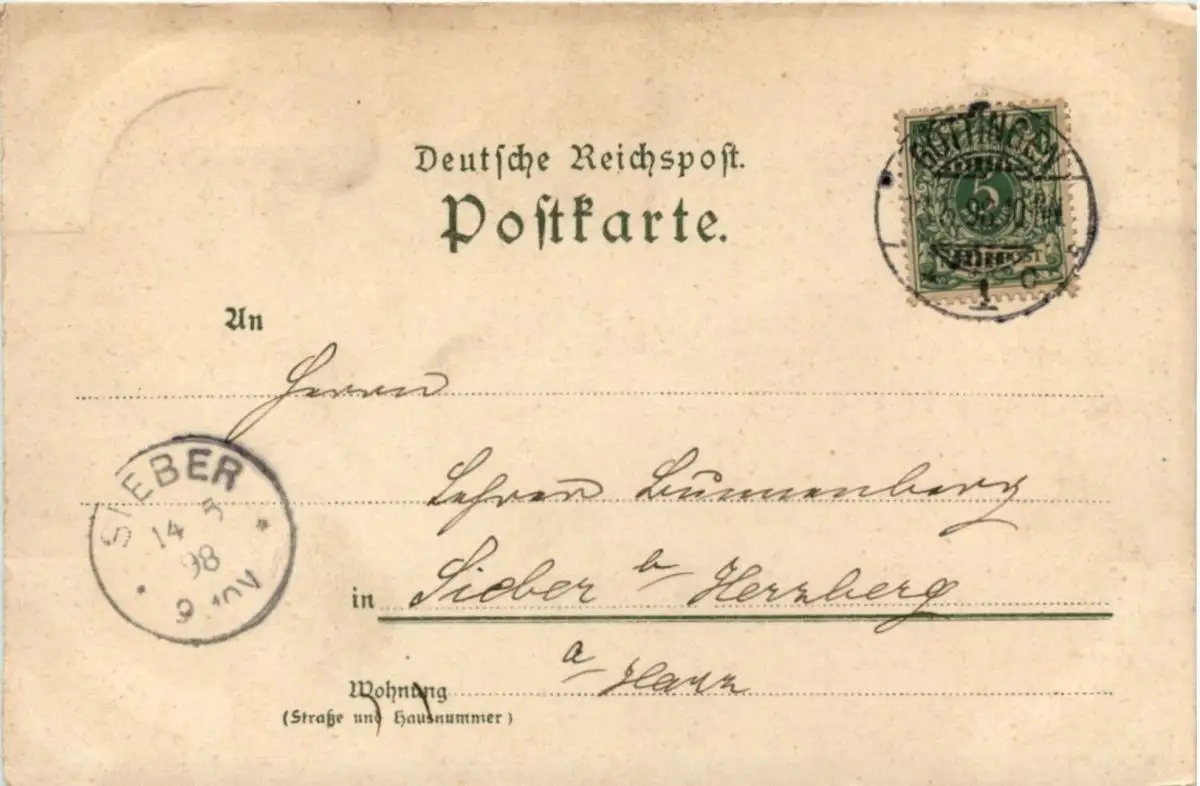 Deutsche Reichspost.
Postkarte.
GÖTTINGEN
5
98
1 c
An
Herrn
SIEBER
14 5
98
9 10V
Lehrer Bünnenberg
in Sieber b Herzberg
a Harz
Wohnung
(Straße und Hausnummer)